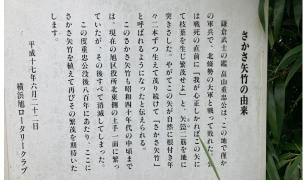 さかさ矢竹の由来
鎌倉武士の鑑、畠山重忠公は、この地で僅か
の軍兵で、北條勢の大軍と戦って敗れた。公
は戦死の直前に「我が心正しかればこの矢に
て枝葉を生じ繁茂せよ」と、矢箆二筋を地に
突きさした。やがてこの矢が自然に根付き年
々二本ずつ生えて茂り続けて「さかさ矢竹」
と呼ばれるようになったと伝えられる。
このさかさ矢竹も昭和四十年代の中頃まで
は、現在の旭区役所北東側の土手一面に繁っ
ていたが、その後すべて消滅してしまった。
この度重忠公没後八百年にあたり、ここに
さかさ矢竹を植えて再びその繁茂を期待いた
します。
平成十七年六月二十二日
横浜旭ロータリークラブ